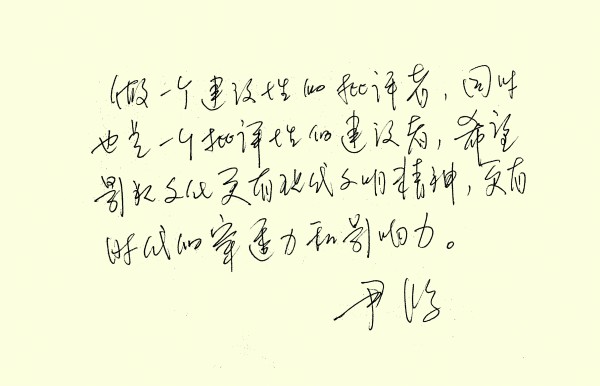 做一个建设性的批评者，同时
也是一个批评性的建设者，希望
影视文化更有现代文明精神，更有
时代的穿透力和影响力。
尹鸿